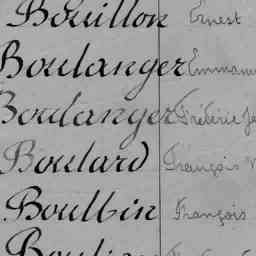 Bouillon Ernest
Boulanger Emmanu
Boulanger Frédéric Je
Boulard François
Boulbin François